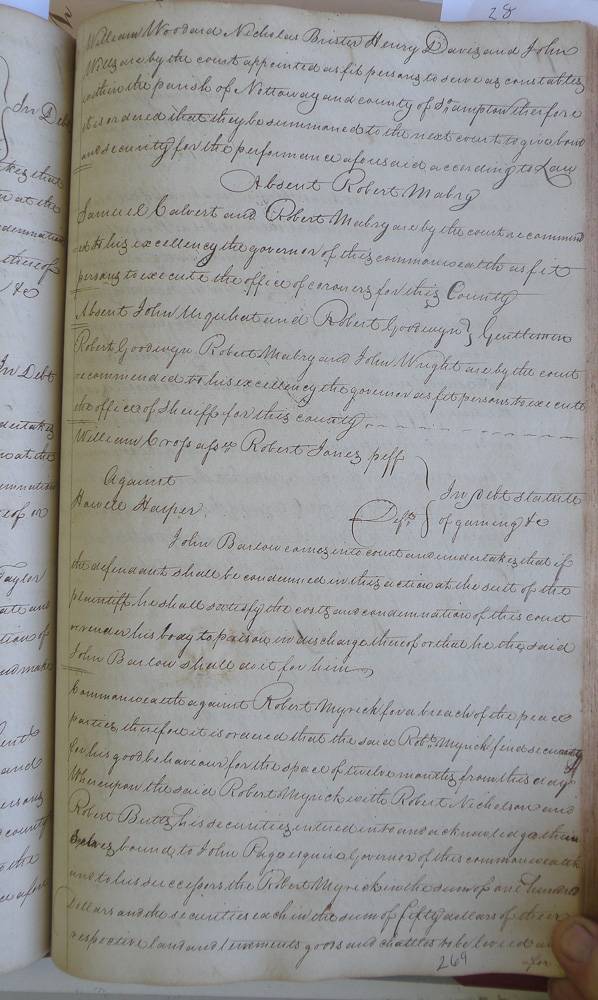 28
William Woodard Nicholas Brister Henry Davis and John
Wills are by the court appointed as fit persons to serve as constables
within the parish of Nottoway and county of So. ampton therefore
it is ordered that they be summoned to the next court to give bond
and security for the performance aforesaid according to Law
Absent Robert Mabry
Samuel Calvert and Robert Mabry are by the court recommend
ed to his excellency the governor of this commonwealth as fit
persons to execute the office of coroners for this County
Absent John Urquhat and Robert Goodwyn } Gentlemen
Robert Goodwyn Robert Mabry and John Wright are by the court
recommended to his excellency the governor as fit persons to execute
the office of Sheriff for this County
William Cross assee Robert Jones plff
Against
Howell Harper Deft } In Debt statute
of gaming &c
John Barlow comes into court and undertakes that if
the defendant shall be condemned in this action at the suit of the
plaintiff he shall satisfy the costs and condemnation of this court
or render his body to prison in discharge thereof or that he the said
John Barlow shall do it for him
Commonwealth against Robert Myrick for a breach of the peace
parties therefore it is ordered that the said Robt. Myrick find security
for his good behaveour for the space of twelve months from this day
Whereupon the said Robert Myrick with Robert Nicholson and
Robert Butts his securities entered into and acknowledge them
selves bound to John Page esquire Governor of this commonwealth
and to his successors the Robert Myrick in the sum of one hundred
Dollars and the securities each in the sum of fifty dollars of their
respective land and tenements goods and chattles to be levied and
269
In Debt
&c
In Debt
Taylor